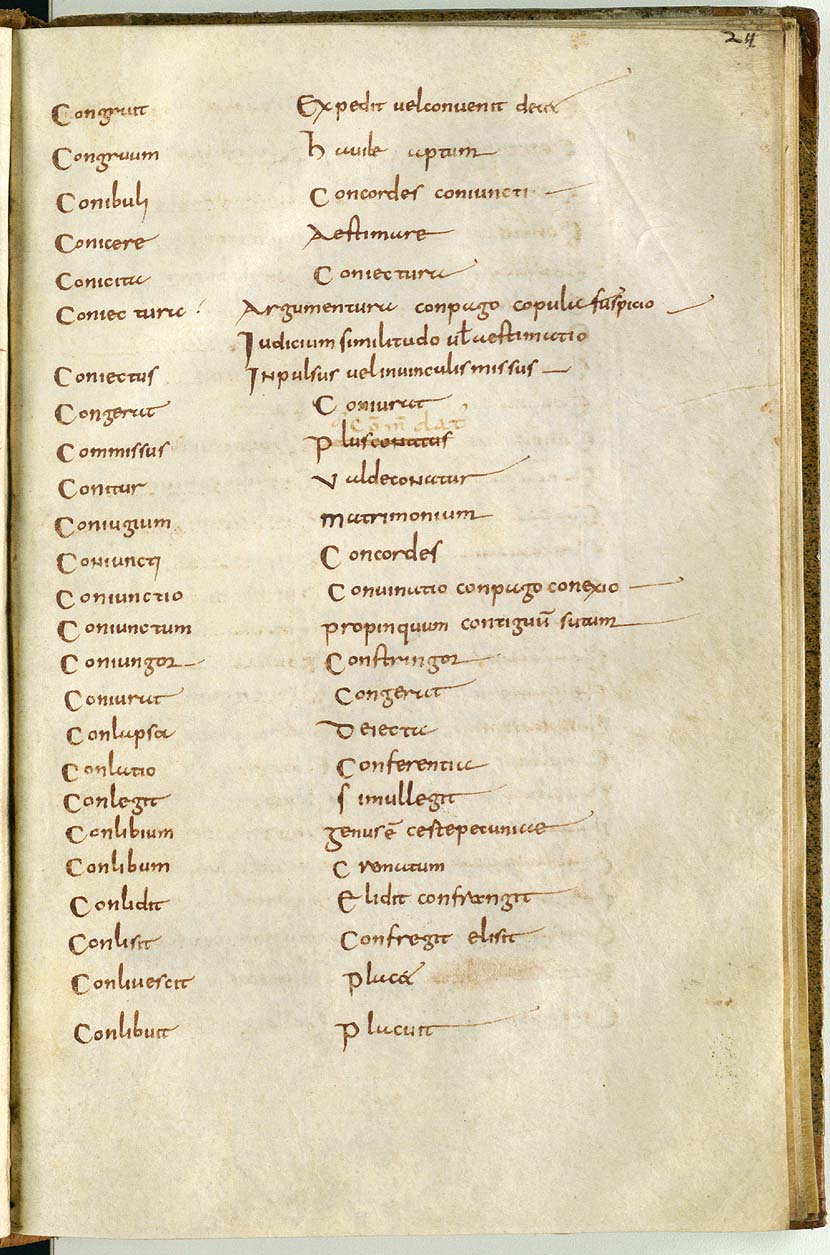 24
Congruit Expedit vel convenit dec&
Congruum habile aptum
Conibuli Concordes coniuncti
Conicere Aestimare
Conicita Coniectura
Coniectura Argumentura conpago copula suspicio
Judicium similitudo ul aestimatio
Coniectus Inpulsus vel in vinculis missus
Congerat Coniurat
com̄ dat
Commissus Plus conatus
Conitur Valde conatur
Coniugium matrimonium
Coniuncti Concordes
Coniunctio Convinatio conpago conexio
Coniunctum propinquum contiguū sutum
Coniungor Constringor
Coniurat Congerat
Conlapsa Deiecta
Conlatio Conferentia
Conlegit simul legit
Conlibium genus ē cestepecuniae
Conlibum Crematum
Conlidit Elidit confrangit
Conlisit Confregit elisit
Conlivescit Plac&
Conlibuit Placuit